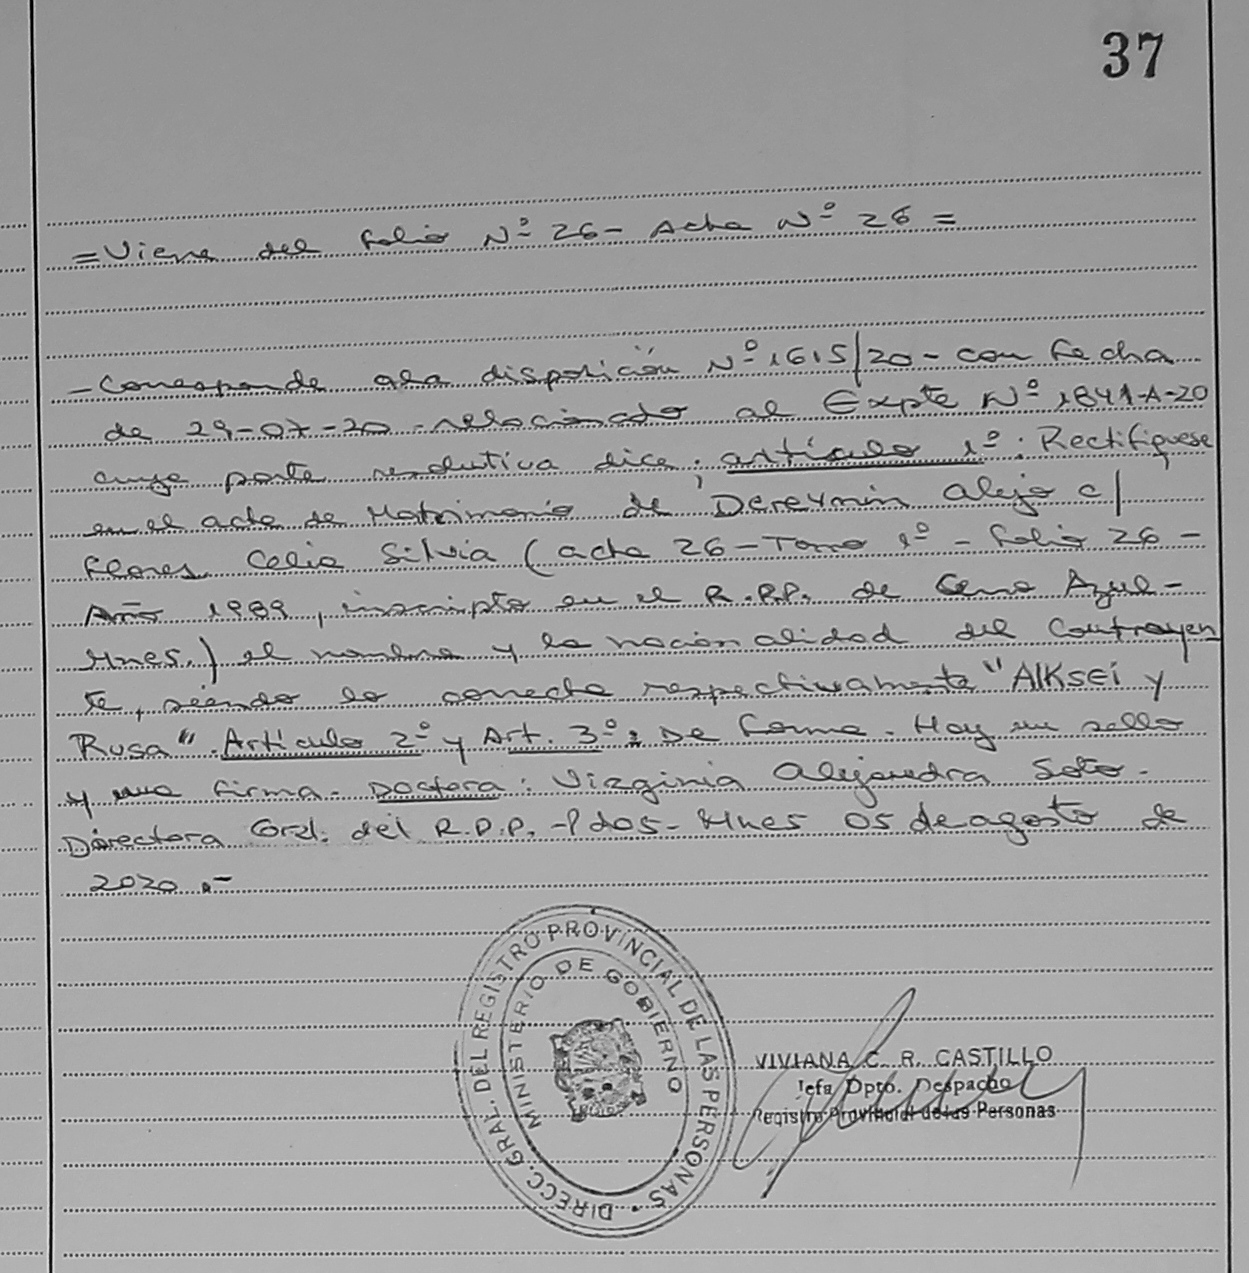 37
= Viene del folio Nº 26 - Acta Nº 26 =
- Corresponde a la disposición Nº 1615/20 - con fecha
de 29-07-20 - relacionado al Expte Nº 1841-A-20
cuya parte resolutiva dice: artículo 1º: Rectifiquese
en el acta de Matrimonio de Dereymin Alejo c/
Flores Celia Silvia (acta 26 - Tomo 1º - folio 26 -
Año 1989, inscripto en el R.P.P. de Cerro Azul -
Mnes.) el nombre y la nacionalidad del Contrayen
te, siendo lo correcto respectivamente "AlKsei y
Rusa". Artículo 2º y Art. 3º: De forma. Hay un sello
y una firma. Doctora: Virginia Alejandra Soto -
Directora Gral. del R.P.P. - Pdos - Mnes 05 de agosto de
2020 .-
DIRECC. GRAL. DEL REGISTRO PROVINCIAL DE LAS PERSONAS
MINISTERIO DE GOBIERNO
VIVIANA C. R. CASTILLO
Jefa Dpto. Despacho
Registro Provincial de las Personas